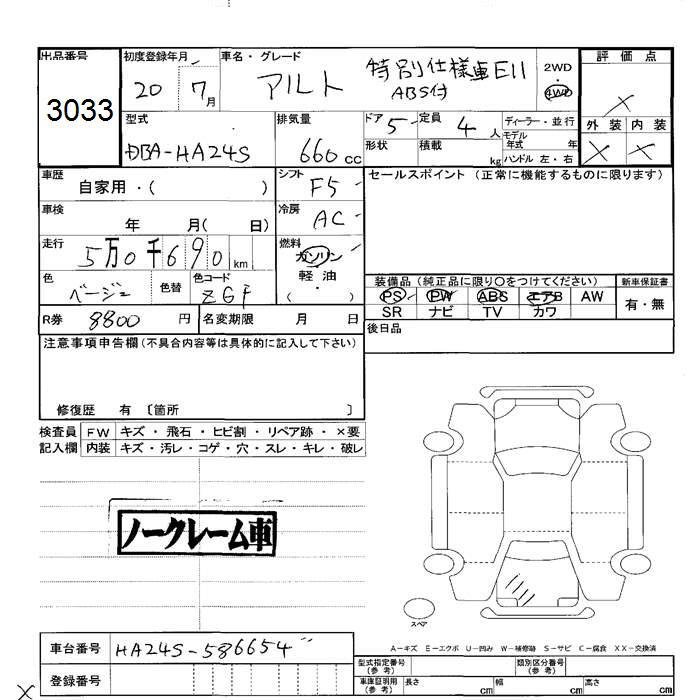 出品番号 初度登録年月 車名・グレード 評価点
3033 20 7月 アルト 特別仕様車EII ABS付 2WD 4WD ×
型式 排気量 ドア 5 定員 4 人 ディーラー・並行 外装 内装
DBA-HA24S 660 cc 形状 積載 kg モデル年式 年 × ×
ハンドル 左・右
車歴 自家用・( ) シフト F5 セールスポイント (正常に機能するものに限ります)
車検 年 月( 日) 冷房 AC
走行 5万0千690 km 燃料 ガソリン 軽油 ( )
色 ベージュ 色替 色コード ZGF 装備品 (純正品に限り○をつけてください) 新車保証書
PS PW ABS エアB AW 有・無
SR ナビ TV カワ
R券 8800 円 名変期限 月 日 後日品
注意事項申告欄 (不具合内容等は具体的に記入して下さい)
修復歴 有 〔箇所 〕
検査員 FW キズ・飛石・ヒビ割・リペア跡・×要
記入欄 内装 キズ・汚レ・コゲ・穴・スレ・キレ・破レ
ノークレーム車
スペア
車台番号 HA24S-586654
A-キズ E-エクボ U-凹み W-補修跡 S-サビ C-腐食 XX-交換済
型式指定番号 (参考) 類別区分番号 (参考)
登録番号 車庫証明用 (参考) 長さ cm 幅 cm 高さ cm
×